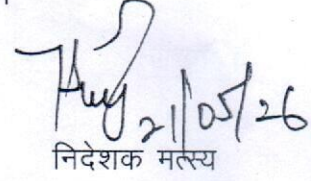 21/05/26
निदेशक मत्स्य